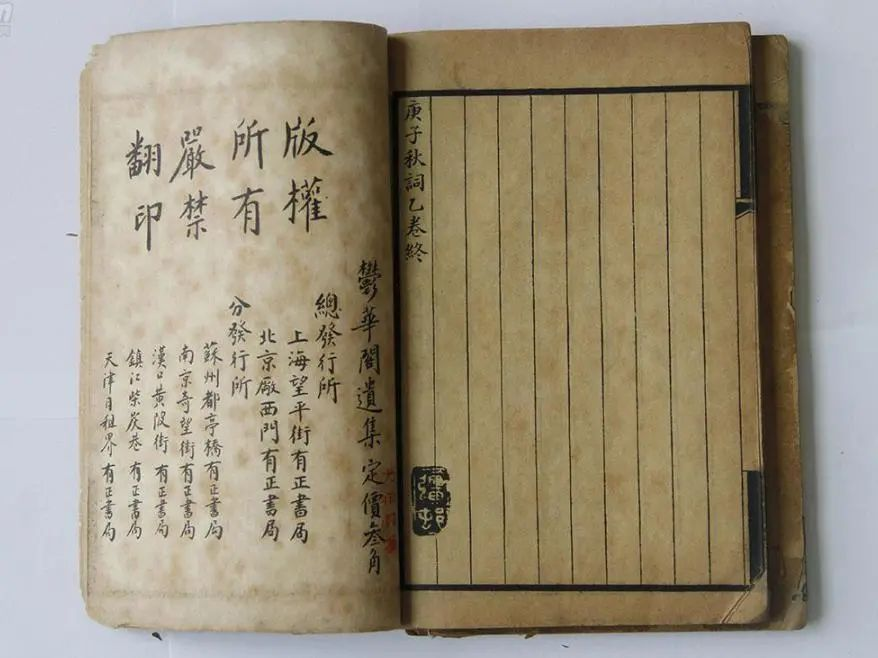 庚子秋詞乙卷終
版權
所有
嚴禁
翻印
鬱華閣遺集 定價叁角
總發行所
上海望平街有正書局
北京廠西門有正書局
分發行所
蘇州都亭橋有正書局
南京奇望街有正書局
漢口黃陂街有正書局
鎮江柴炭巷有正書局
天津日租界有正書局